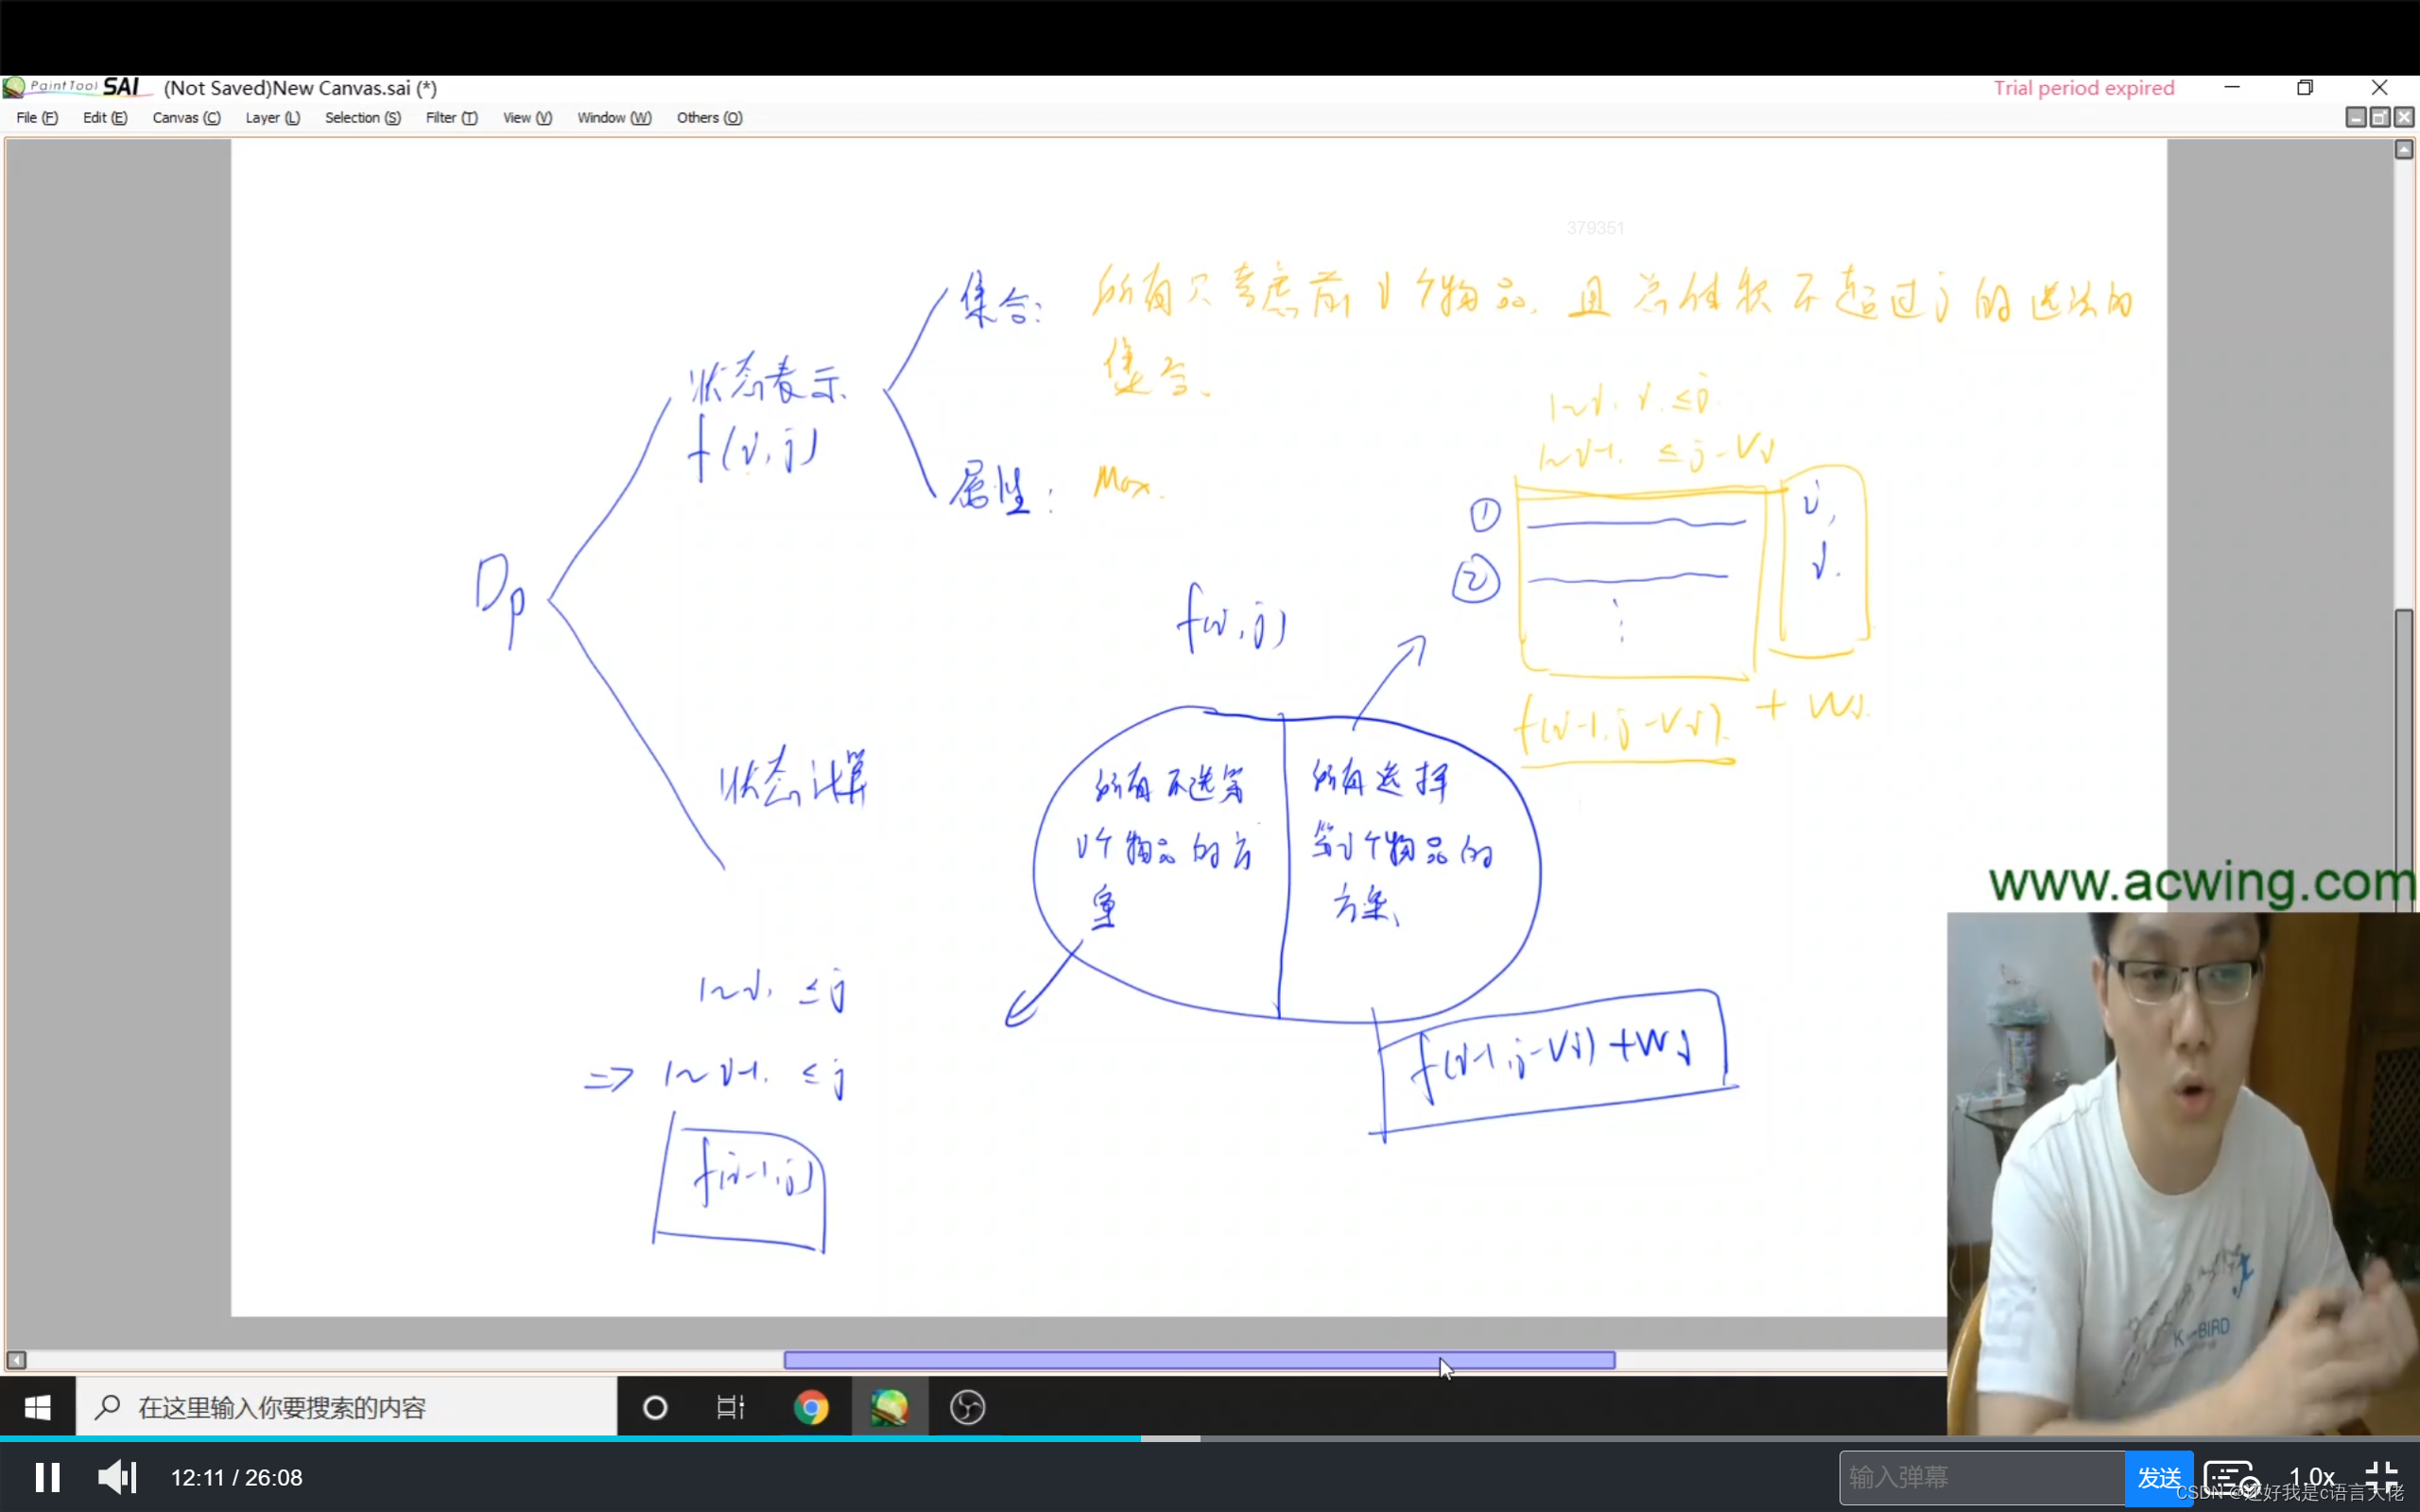 PaintTool SAI (Not Saved)New Canvas.sai (*)
Trial period expired
File (F) Edit (E) Canvas (C) Layer (L) Selection (S) Filter (T) View (V) Window (W) Others (O)
379351
集合: 所有只考虑前i个物品, 且总体积不超过j的选法的
集合.
状态表示
f(i,j)
属性: Max.
1~i. ≤j
1~i-1. ≤j-Vi
① i,
② i.
⋮
f(i-1,j-Vi). + Wi.
Dp
f(i,j)
状态计算
所有不选第
i个物品的方
案
所有选择
第i个物品的
方案.
1~i. ≤j
⇒ 1~i-1. ≤j
f(i-1,j)
f(i-1,j-Vi)+Wi
www.acwing.com
K-BIRD
在这里输入你要搜索的内容
12:11 / 26:08
输入弹幕 发送 1.0x
CSDN @还好我是c语言大佬